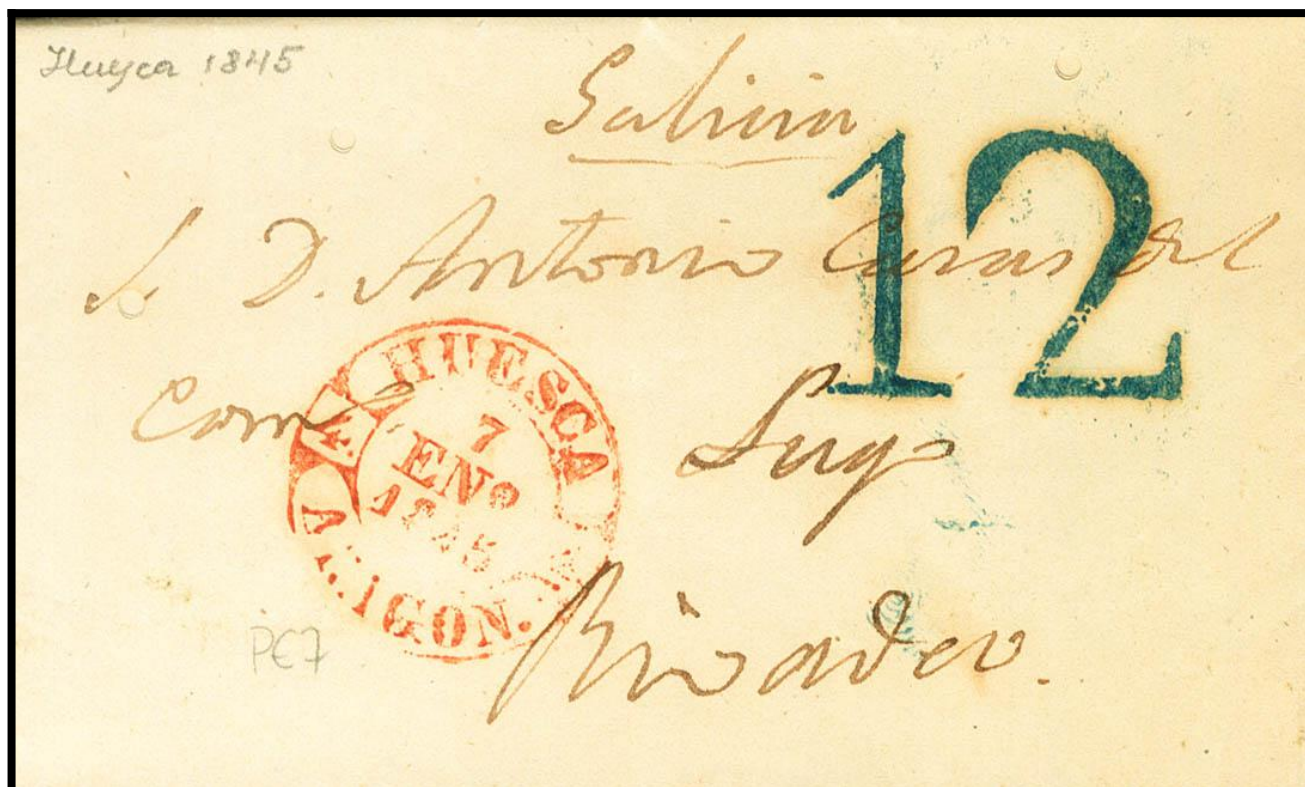 Huesca 1845
Galicia
12
D. Antonio Casas del
Com.º
HUESCA
7
ENº
1845
ARAGON.
Lugo
Rivadeo.
PE7